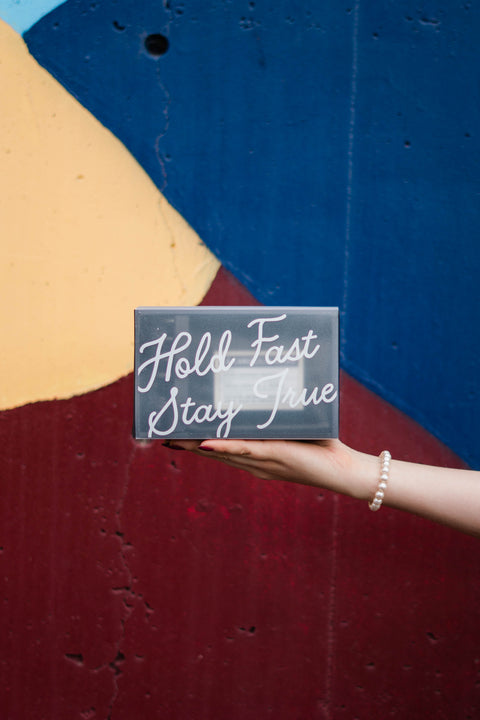 Hold Fast
Stay True